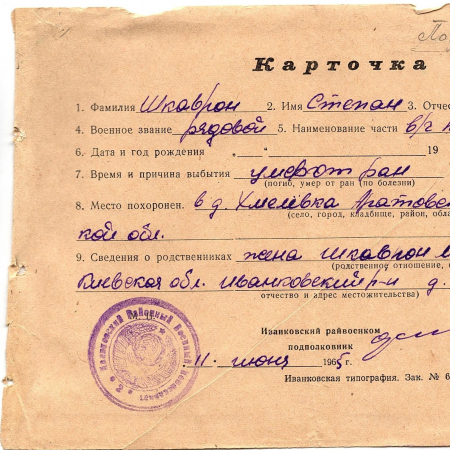 По
Карточка
1. Фамилия Шкаврон 2. Имя Степан 3. Отче
4. Военное звание рядовой 5. Наименование части в/ч
6. Дата и год рождения „ “ 19
7. Время и причина выбытия умер от ран
(погиб, умер от ран (по болезни)
8. Место похоронен. в д. Хмелевка
(село, город, кладбище, район, обла
кой обл.
9. Сведения о родственниках жена Шкаврон
(родственное отношение,
Киевская обл. Иванковский р-н д.
отчество и адрес местожительства)
Иванковским райвоенком
подполковник
„11“ июня 1965 г.
Иванковская типография. Зак. № 6
Иванковский Районный Военный Комиссариат